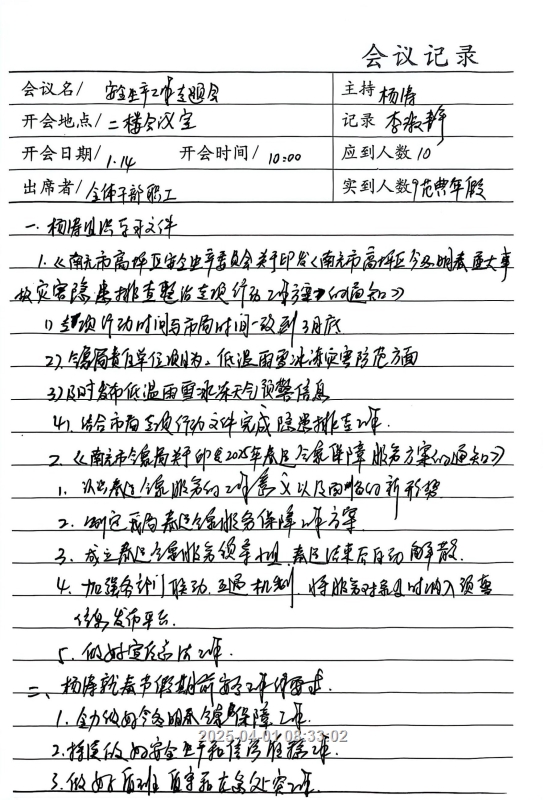 会议记录
会议名/ 安全生产工作专题会 主持 杨涛
开会地点/ 二楼会议室 记录 李淑静
开会日期/ 1.14 开会时间/ 10:00 应到人数 10
出席者/ 全体干部职工 实到人数 9 范典年假
一、杨涛组织学习文件
1.《南充市高坪区安全生产委员会关于印发《南充市高坪区今冬明春重大事
故灾害隐患排查整治专项行动工作方案》的通知》
1) 专项行动时间与市局时间一致到3月底
2) 气象局责任单位项目为:低温雨雪冰冻灾害防范方面
3) 及时发布低温雨雪冰冻天气预警信息
4) 结合市局专项行动文件完成隐患排查工作.
2.《南充市气象局关于印发2025年春运气象保障服务方案的通知》
1. 认识春运气象服务的工作意义以及面临的新形势
2. 制定我局春运气象服务保障工作方案
3. 成立春运气象服务领导小组,春运结束后自动解散.
4. 加强各部门联动,互通机制,将服务对象及时纳入预警
信息发布平台.
5. 做好宣传总结工作.
二、杨涛就春节假期前安全工作作要求.
1. 全力做好今冬明春气象保障工作.
2. 持续做好安全生产和信访维稳工作.
3. 做好值班值守和应急处突工作.
2025-04-01 08:33:02